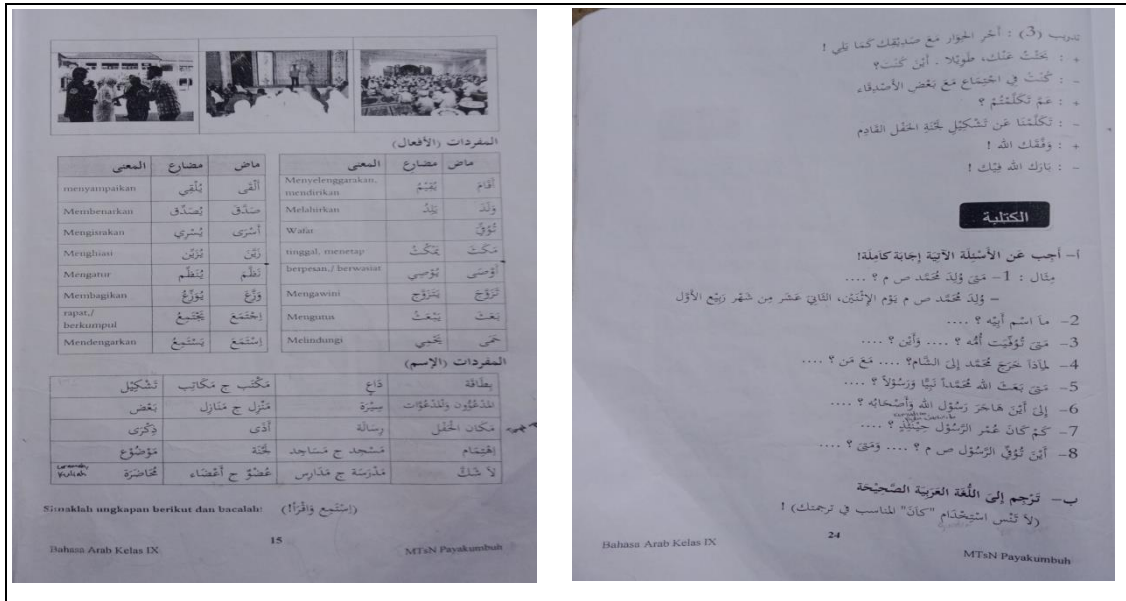 المفردات (الأفعال)
ماض مضارع المعنى
أَقَامَ يُقِيْمُ Menyelenggarakan, mendirikan
وَلَدَ يَلِدُ Melahirkan
تُوُفِّيَ Wafat
مَكَثَ يَمْكُثُ tinggal, menetap
أَوْصَى يُوْصِي berpesan,/ berwasiat
تَزَوَّجَ يَتَزَوَّج Mengawini
بَعَثَ يَبْعَثُ Mengutus
حَمَى يَحْمِي Melindungi
ماض مضارع المعنى
أَلْقَى يُلْقِي menyampaikan
صَدَّقَ يُصَدِّق Membenarkan
أَسْرَى يُسْرِي Mengisrakan
زَيَّنَ يُزَيِّن Menghiasi
نَظَّمَ يُنَظِّم Mengatur
وَزَّعَ يُوَزِّعُ Membagikan
اِجْتَمَعَ يَجْتَمِعُ rapat,/ berkumpul
اِسْتَمَعَ يَسْتَمِعُ Mendengarkan
المفردات (الإسم)
بِطَاقَة دَاعٍ مَكْتَب ج مَكَاتِب تَشْكِيْل
المَدْعُوُّون وَالمَدْعُوَّات سِيْرَة مَنْزِل ج مَنَازِل بَعْض
مَكَان الحَفْل رِسَالَة أَذَى ذِكْرَى
اِهْتِمَام مَسْجِد ج مَسَاجِد لَجْنَة مَوْضُوْع
لاَ شَكَّ مَدْرَسَة ج مَدَارِس عُضْو ج أَعْضَاء مُحَاضَرَة
Simaklah ungkapan berikut dan bacalah: (اِسْتَمِع وَاقْرَأ!)
15
Bahasa Arab Kelas IX MTsN Payakumbuh
تدريب (3) : أَجْرِ الحِوَار مَعَ صَدِيْقِك كَمَا يَلِي !
+ : بَحَثْتُ عَنْكَ، طَوِيْلا . أَيْنَ كُنْتَ؟
- : كُنْتُ فِي اجْتِمَاع مَعَ بَعْضِ الأَصْدِقَاء
+ : عَمَّ تَكَلَّمْتُمْ ؟
- : تَكَلَّمْنَا عَن تَشْكِيْلِ لَجْنَةِ الحَفْل القَادِم
+ : وَفَّقَك الله !
- : بَارَك الله فِيْك !
الكتابة
أ- أَجِب عَن الأَسْئِلَة الآتِيَة إِجَابَة كَامِلَة!
مِثَال : 1- مَتَى وُلِدَ مُحَمَّد ص م ؟ ....
- وُلِدَ مُحَمَّد ص م يَوْم الإِثْنَيْن، الثَّانِيَ عَشَر مِن شَهْر رَبِيْع الأَوَّل
2- مَا اسْم أَبِيْه ؟ ....
3- مَتَى تُوُفِّيَت أُمُّه ؟ .... وَأَيْن ؟ ....
4- لِمَاذَا خَرَجَ مُحَمَّد إِلَى الشَّام؟ .... مَعَ مَن ؟ ....
5- مَتَى بَعَثَ الله مُحَمَّداً نَبِيًّا وَرَسُوْلاً ؟ ....
6- إِلَى أَيْنَ هَاجَرَ رَسُوْل الله وَأَصْحَابُه ؟ ....
7- كَمْ كَانَ عُمْر الرَّسُوْل حِيْنَئِذٍ ؟ ....
8- أَيْنَ تُوُفِّيَ الرَّسُوْل ص م ؟ .... وَمَتَى ؟ ....
ب- تَرْجِم إِلَى اللُّغَة العَرَبِيَّة الصَّحِيْحَة
(لاَ تَنْسَ اسْتِخْدَام "كَانَ" المناسب في ترجمتك) !
24
Bahasa Arab Kelas IX MTsN Payakumbuh